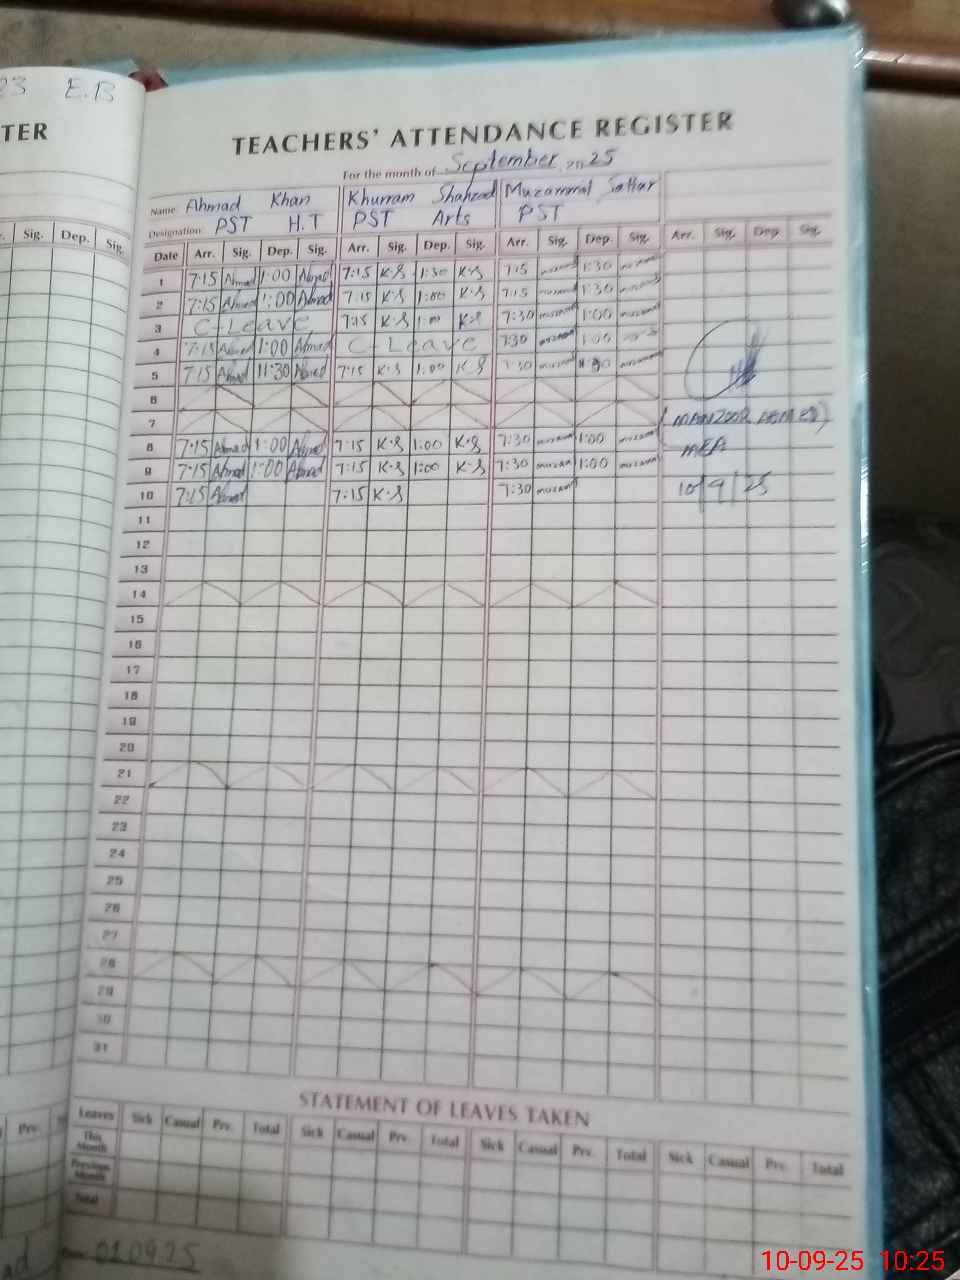 23 E.B
TER
TEACHERS' ATTENDANCE REGISTER
For the month of September 2025
Name: Ahmad Khan Khurram Shahzad Muzammil Sattar
Designation: PST H.T PST Arts PST
Sig. Dep. Sig.
Date Arr. Sig. Dep. Sig. Arr. Sig. Dep. Sig. Arr. Sig. Dep. Sig. Arr. Sig. Dep. Sig.
1 7:15 Ahmad 1:00 Ahmad 7:15 K.S 1:30 K.S 7:15 1:30
2 7:15 Ahmad 1:00 Ahmad 7:15 K.S 1:00 K.S 7:15 1:30
3 C-Leave 7:15 K.S 1:00 K.S 7:30 1:00
4 7:15 Ahmad 1:00 Ahmad C-Leave 7:30 1:00
5 7:15 Ahmad 11:30 Ahmad 7:15 K.S 1:00 K.S 7:30
6
7
8 7:15 Ahmad 1:00 Ahmad 7:15 K.S 1:00 K.S 7:30 1:00
9 7:15 Ahmad 1:00 Ahmad 7:15 K.S 1:00 K.S 7:30 1:00
10 7:15 Ahmad 7:15 K.S 7:30
(MANZOOR AHMED)
MEA
10/9/25
11
12
13
14
15
16
17
18
19
20
21
22
23
24
25
26
27
28
29
30
31
STATEMENT OF LEAVES TAKEN
Prv.
Leaves Sick Casual Prv. Total Sick Casual Prv. Total Sick Casual Prv. Total Sick Casual Prv. Total
This Month
Previous Month
Total
010925
10-09-25 10:25